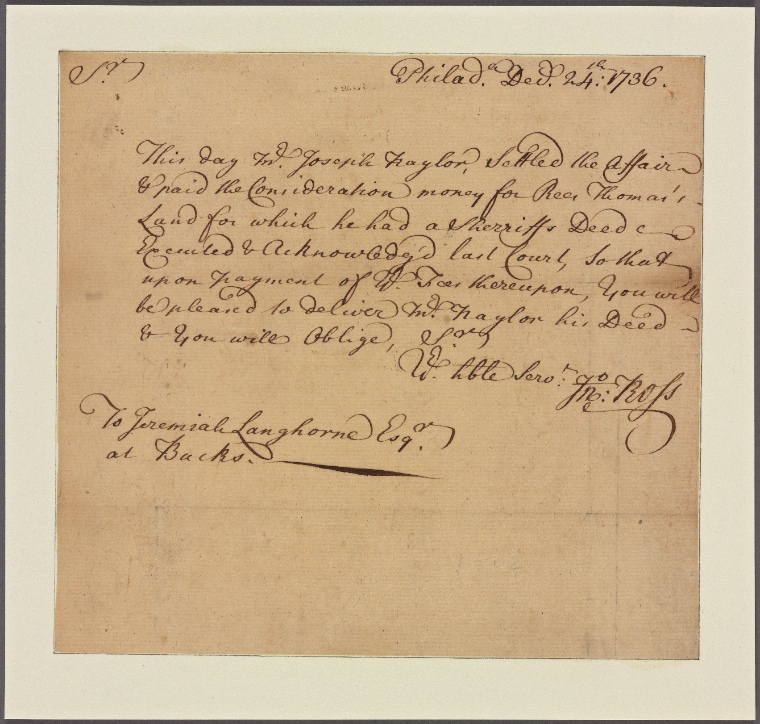 Sr
Philada. Decr. 24th: 1736.
This day Mr. Joseph Naylor, Settled the Affair
& paid the Consideration money for Rees Thomas's
Land for which he had a Sherriffs Deed
Executed & Acknowledg'd last Court, So that
upon payment of Yr. Fees thereupon, You will
be pleased to deliver Mr. Naylor his Deed
& You will Oblige, Sr
Yr. hble Servt.
Jno: Ross
To Jeremiah Langhorne Esqr.
at Bucks.